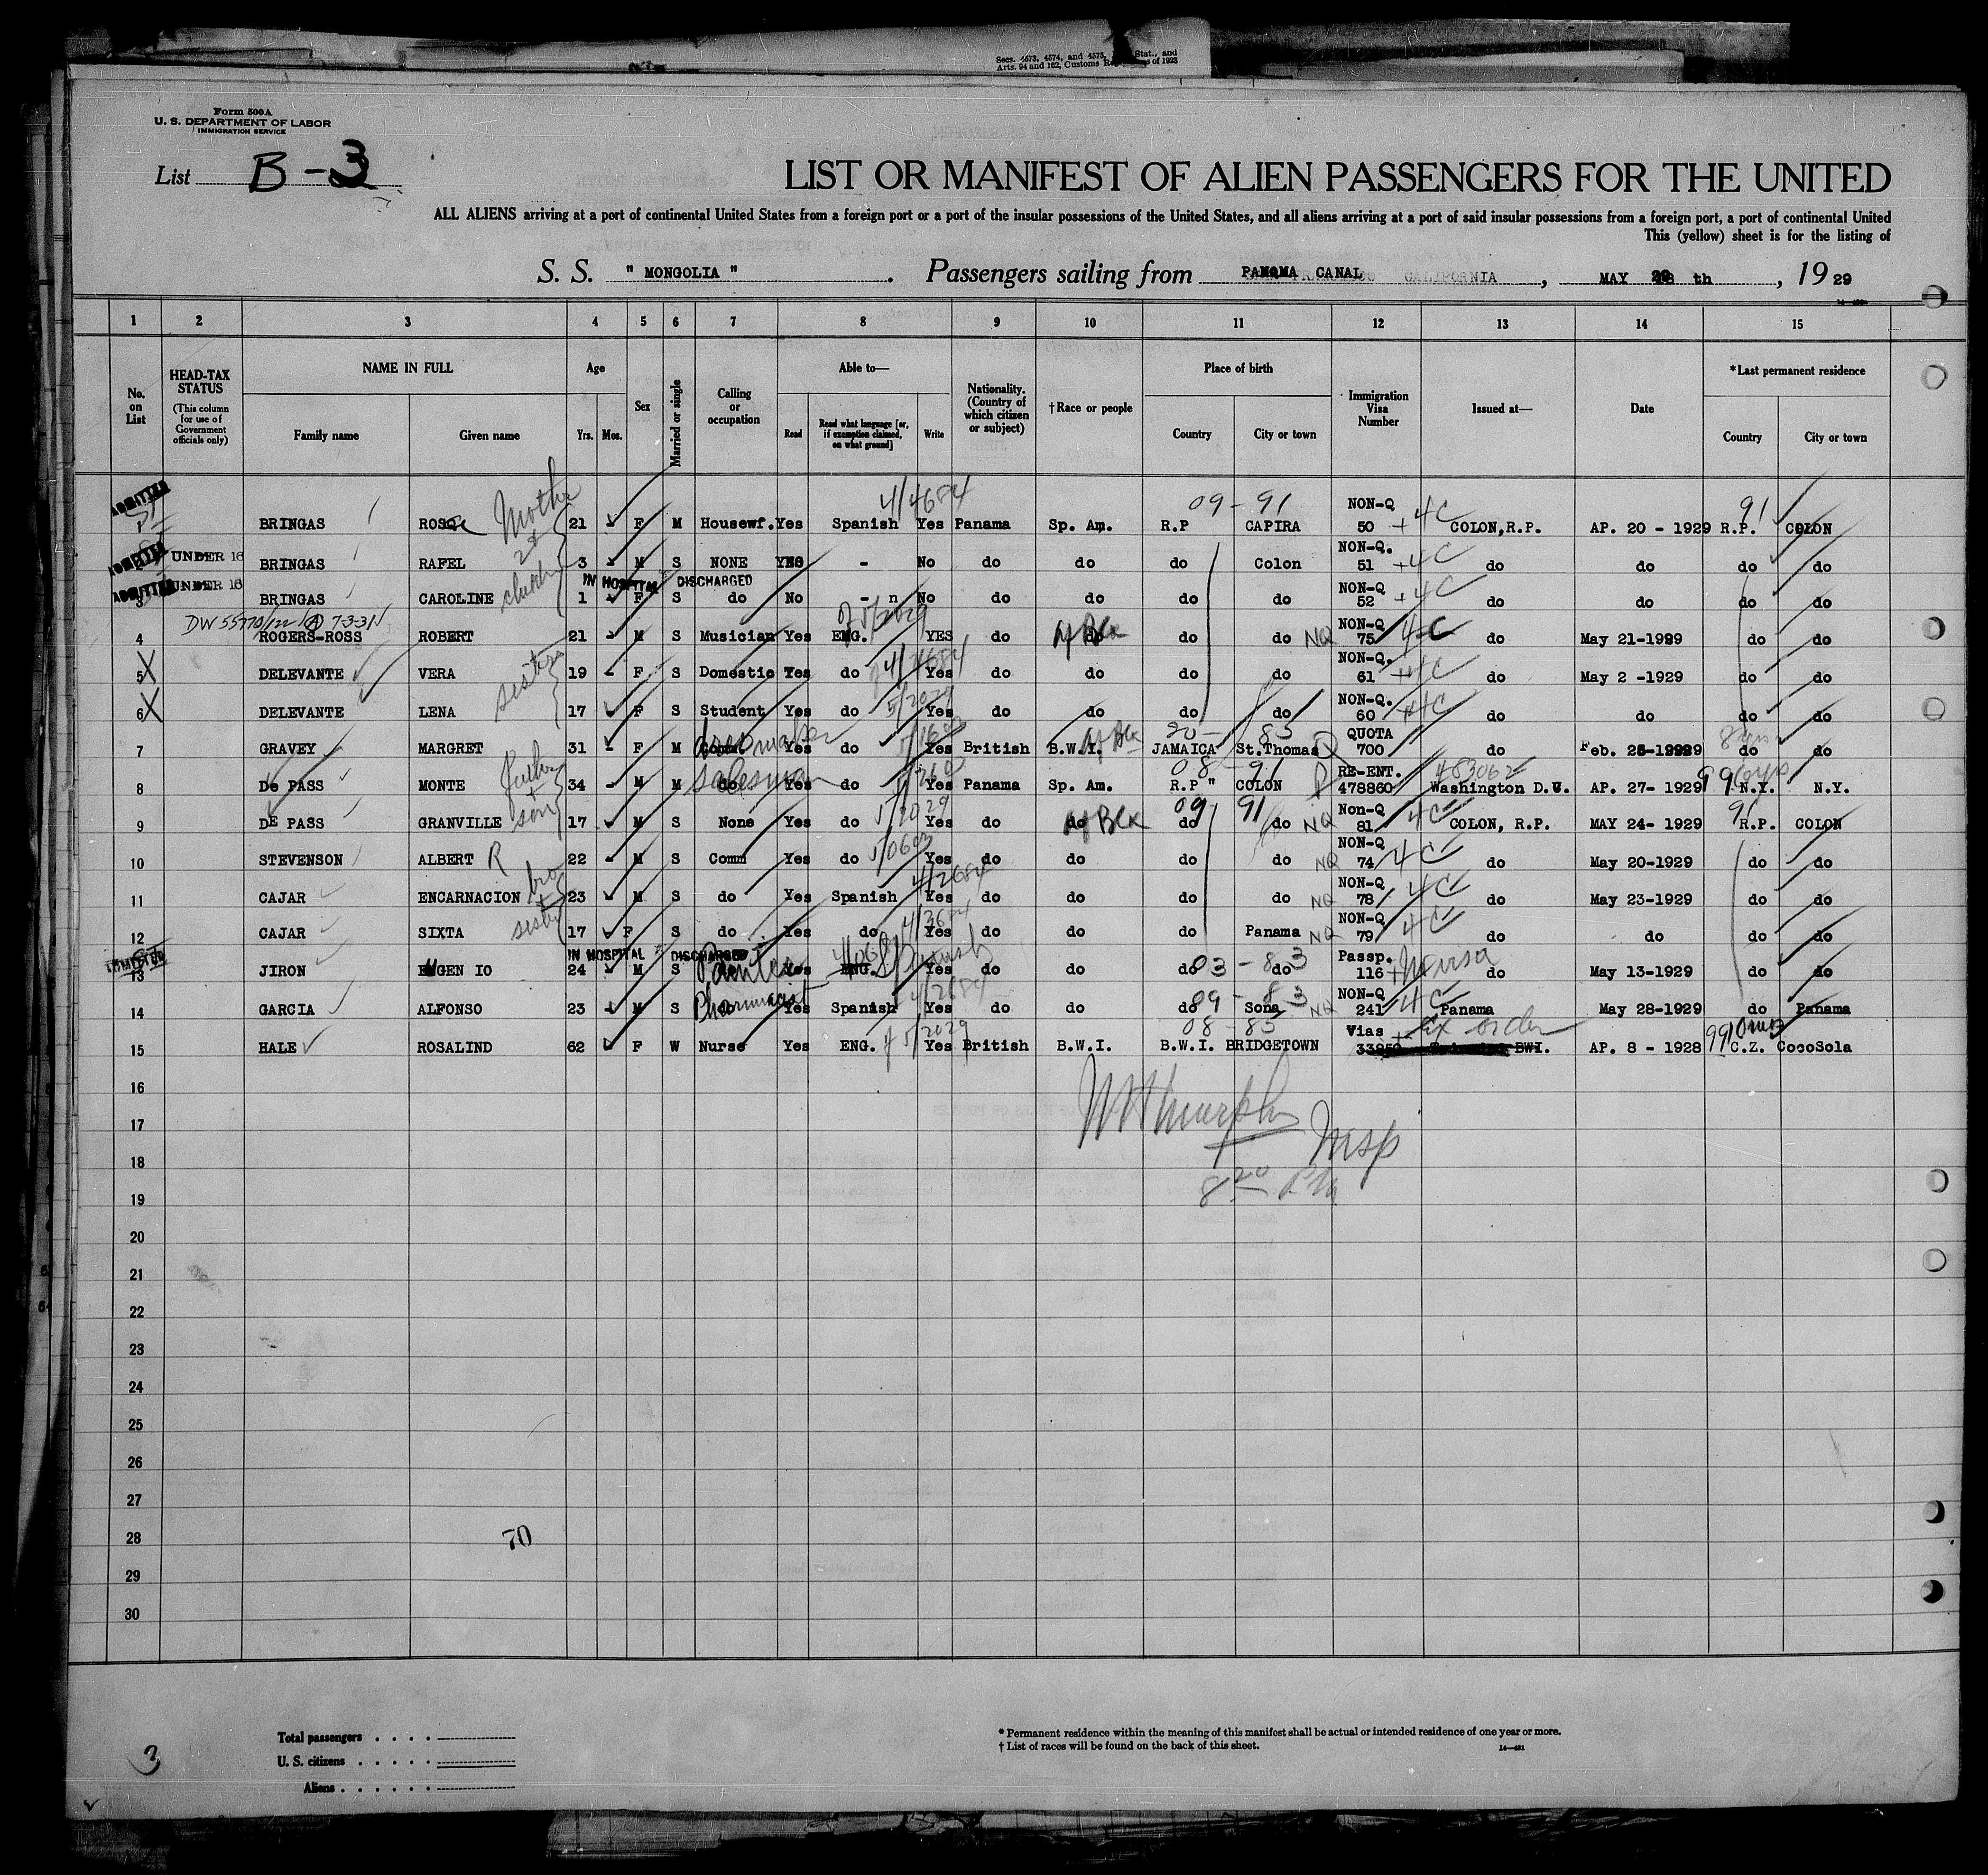 Secs. 4573, 4574, and 4575, Stat., and
Arts. 94 and 162, Customs of 1923
Form 500A
U. S. DEPARTMENT OF LABOR
IMMIGRATION SERVICE
List B-3
LIST OR MANIFEST OF ALIEN PASSENGERS FOR THE UNITED
ALL ALIENS arriving at a port of continental United States from a foreign port or a port of the insular possessions of the United States, and all aliens arriving at a port of said insular possessions from a foreign port, a port of continental United
This (yellow) sheet is for the listing of
S. S. " MONGOLIA ". Passengers sailing from PANAMA CANAL CALIFORNIA, MAY th, 1929
1 2 3 4 5 6 7 8 9 10 11 12 13 14 15
No. on List
HEAD-TAX STATUS (This column for use of Government officials only)
NAME IN FULL Family name Given name
Age Yrs. Mos.
Sex
Married or single
Calling or occupation
Able to— Read Read what language [or, if exemption claimed, on what ground] Write
Nationality. (Country of which citizen or subject)
† Race or people
Place of birth Country City or town
Immigration Visa Number
Issued at—
Date
* Last permanent residence Country City or town
Mother 4/4684 09-91 NON-Q 91
ADMITTED BRINGAS ROSA 21 F M Housewf. Yes Spanish Yes Panama Sp. Am. R.P CAPIRA 50 + 4C COLON, R.P. AP. 20 - 1929 R.P. COLON
2 NON-Q.
ADMITTED UNDER 16 BRINGAS RAFEL 3 M S NONE No - No do do do Colon 51 + 4C do do do do
IN HOSPITAL DISCHARGED NON-Q
ADMITTED UNDER 16 BRINGAS CAROLINE 1 F S do No - n No do do do do 52 + 4C do do do do
DW 55770/122 (A) 7-3-31 5/2029 NON-Q
4 ROGERS-ROSS ROBERT 21 M S Musician Yes ENG. YES do do Af Blk do do NQ 75 4-C do May 21-1929 do do
sisters NON-Q.
5 X DELEVANTE VERA 19 F S Domestic Yes do Yes do do do do 61 + 4C do May 2 -1929 do do
5/2029 NON-Q.
6 X DELEVANTE LENA 17 F S Student Yes do Yes do do do do 60 4C do do do do
dressmaker 20- 85 QUOTA
7 GRAVEY MARGRET 31 F M Yes do Yes British B.W.I. Af Blk JAMAICA St.Thomas Q 700 do Feb. do do
Father + son salesman 08-91 RE-ENT. 483062
8 De PASS MONTE 34 M M do Yes do Yes Panama Sp. Am. R.P " COLON 478860 Washington D.C. AP. 27- 1929 N.Y. N.Y.
5/2029 09 91 Non-Q 91
9 DE PASS GRANVILLE 17 M S None Yes do Yes do do Af Blk do do NQ 81 4C COLON, R.P. MAY 24- 1929 R.P. COLON
NON-Q
10 STEVENSON ALBERT R 22 M S Comm Yes do Yes do do do do NQ 74 4C do May 20-1929 do do
bro + sister 4/2684 NON-Q
11 CAJAR ENCARNACION 23 M S do Yes Spanish Yes do do do do NQ 78 4C do May 23-1929 do do
4/3684 NON-Q
12 CAJAR SIXTA 17 F S do Yes do Yes do do do Panama NQ 79 4C do do do do
IN HOSPITAL DISCHARGED Painter Spanish 03-83 Passp.
ADMITTED 13 JIRON EUGEN IO 24 M S Yes ENG. Yes do do do do 116 do May 13-1929 do do
Pharmacist 4/2684 09-83 NON-Q
14 GARCIA ALFONSO 23 M S Yes Spanish Yes do do do Sona NQ 241 4C Panama May 28-1929 do Panama
5/2029 08-85 Vias Ex order
15 HALE ROSALIND 62 F W Nurse Yes ENG. Yes British B.W.I. B.W.I. BRIDGETOWN BWI. AP. 8 - 1928 C.Z. CocoSola
16
17 WH Murphy Insp
18
19 8 20 PM
20
21
22
23
24
25
26
27
28 70
29
30
Total passengers . . . .
U. S. citizens . . . . .
Aliens . . . . . .
* Permanent residence within the meaning of this manifest shall be actual or intended residence of one year or more.
† List of races will be found on the back of this sheet.
14—421
3